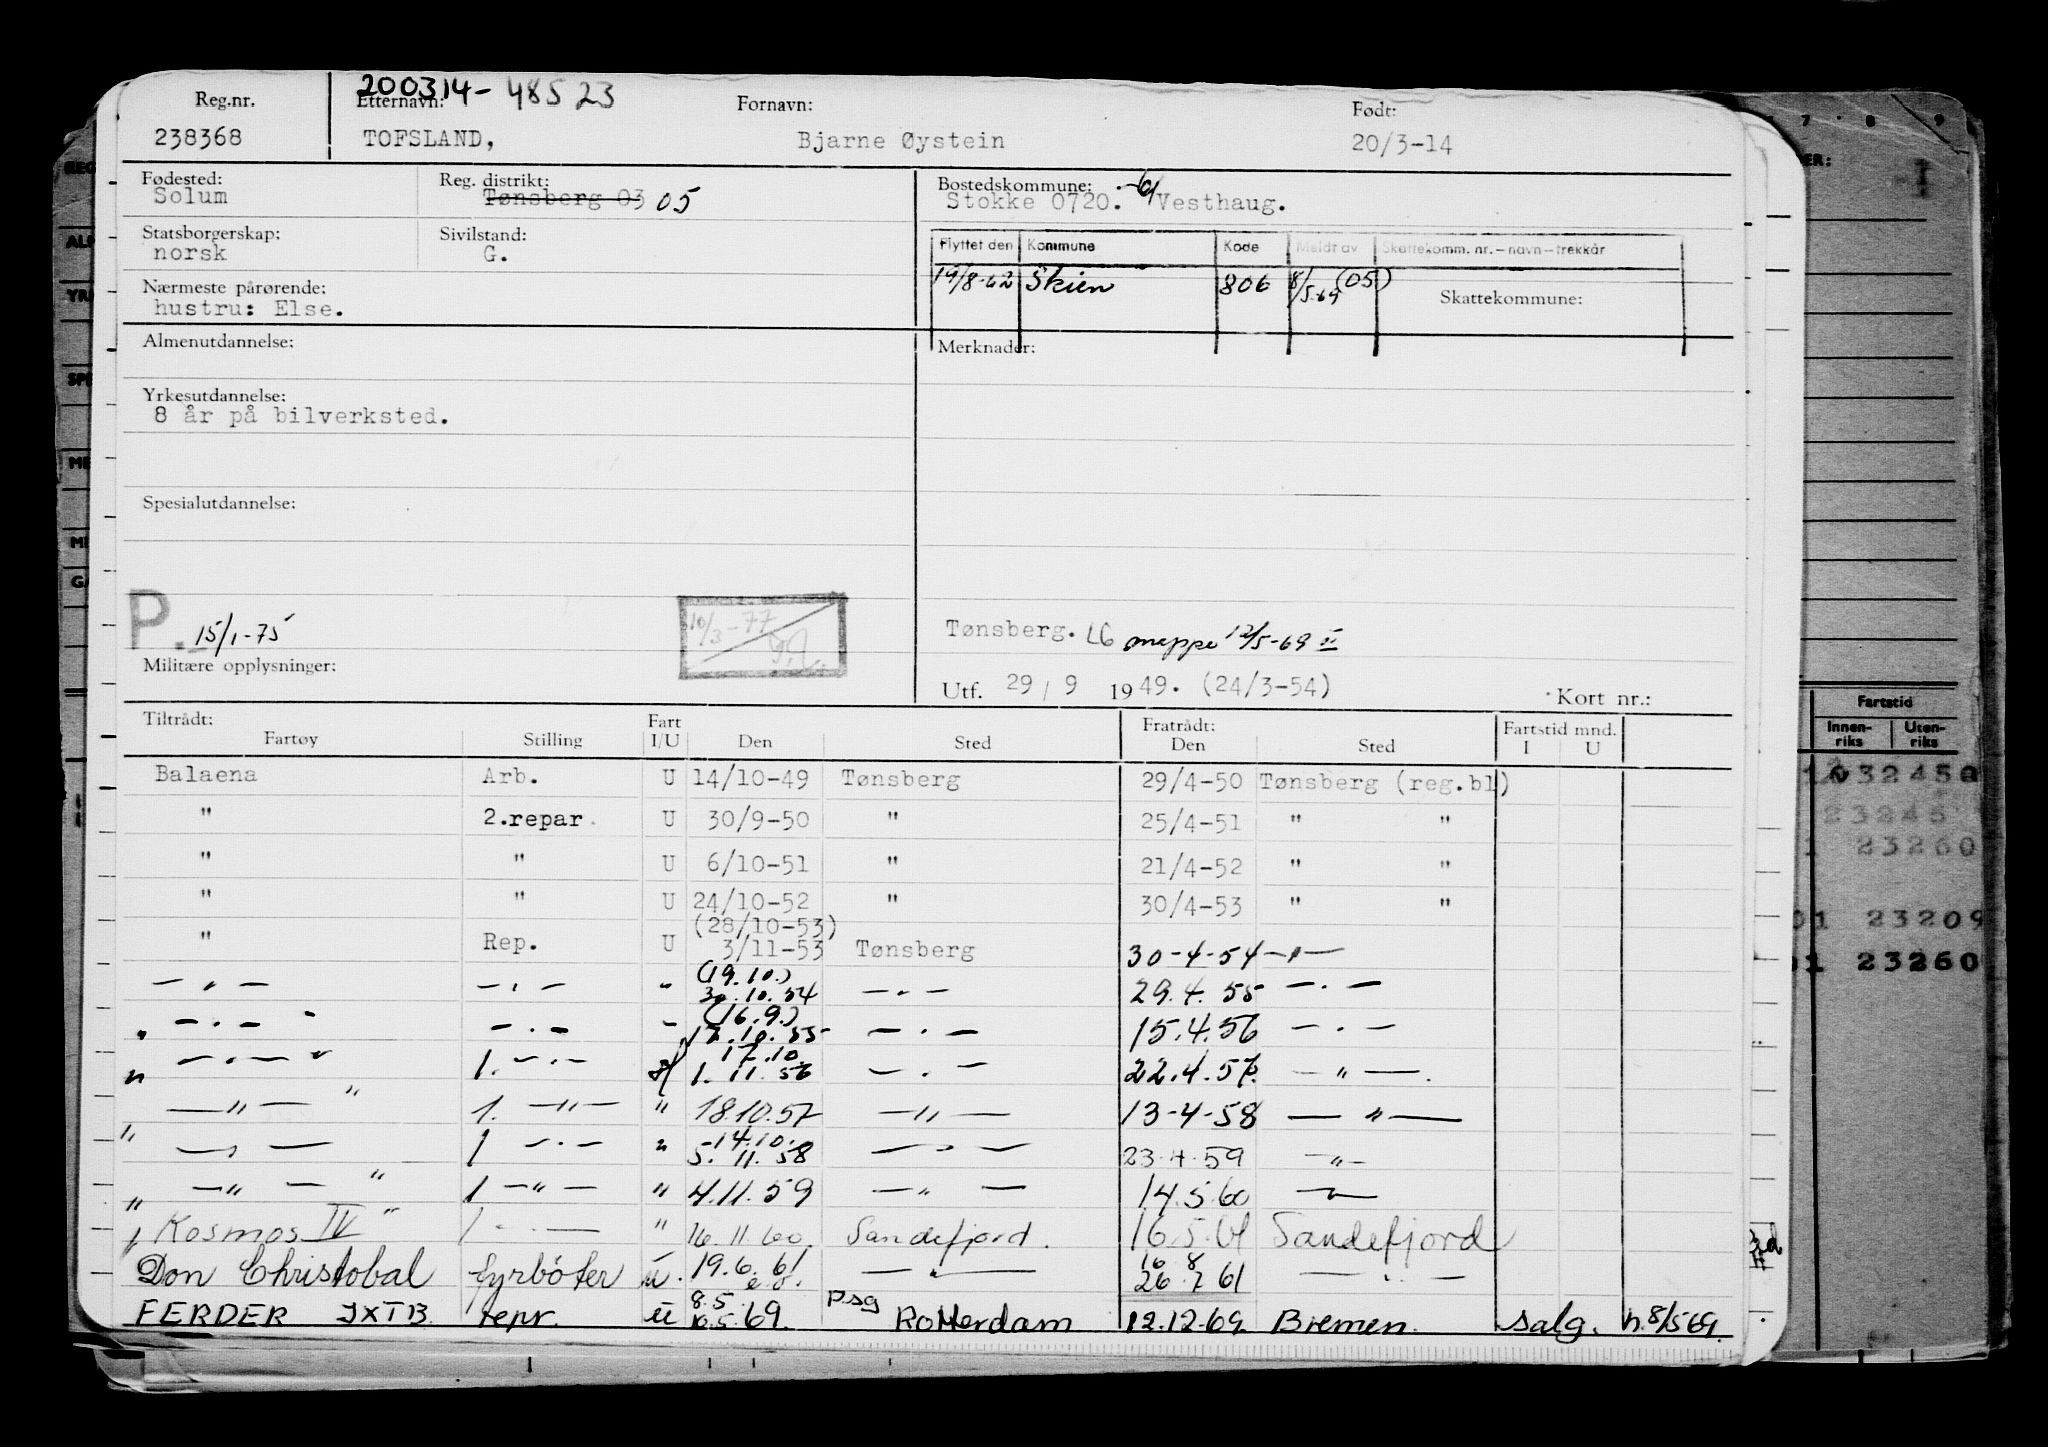 200314-48523
Reg.nr. Etternavn: Fornavn: Født:
238368 TOFSLAND, Bjarne Øystein 20/3-14
Fødested: Reg. distrikt: Bostedskommune:
Solum Tønsberg 03 05 Stokke 0720. Vesthaug.
Statsborgerskap: Sivilstand:
norsk G.
Flyttet den Kommune Kode Meldt av Skattekomm. nr.-navn-trekkår
19/8-62 Skien 806 8/5-69 (05)
Nærmeste pårørende: Skattekommune:
hustru: Else.
Almenutdannelse: Merknader:
Yrkesutdannelse:
8 år på bilverksted.
Spesialutdannelse:
P. 15/1-75 10/3-77
Tønsberg. LG mappe 12/5-69
Militære opplysninger:
Utf. 29/9 1949. (24/3-54) Kort nr.:
Tiltrådt: Fart Fratrådt: Fartstid mnd.
Fartøy Stilling I/U Den Sted Den Sted I U
Balaena Arb. U 14/10-49 Tønsberg 29/4-50 Tønsberg (reg.bl)
" 2.repar. U 30/9-50 " 25/4-51 " "
" " U 6/10-51 " 21/4-52 " "
" " U 24/10-52 " 30/4-53 " "
(28/10-53)
" Rep. U 3/11-53 Tønsberg 30-4-54 -"-
(19.10.)
-"- -"- " 30.10.54 -"- 29.4.55 -"-
(16.9.)
" -"- " -"- " 17.10.55 -"- 15.4.56 -"-
17.10.
" -"- " 1. -"- 1.11.56 -"- 22.4.57. -"-.
-"- " 1. -"- " 18.10.57 -"- 13-4-58 -"-
14.10.
" -"- 1 -"- " 5.11.58 -"- 23.4.59 -"-
" -"- " 1 -"- " 4.11.59 -"- 14.5.60 -"-
" Kosmos IV " 1 -"- " 16.11.60. Sandefjord. 16.5.61 Sandefjord
16 8
Don Christobal fyrbøter u. 19.6.61 -"- 26.7.61 -"-
8.5.
FERDER JXTB repr. u 10.5.69. psg Rotterdam 12.12.69 Bremen. salg. h.8/5 69.
7 8 9
Fartstid
Innenriks Utenriks
32450
23245
23260
01 23209
01 23260